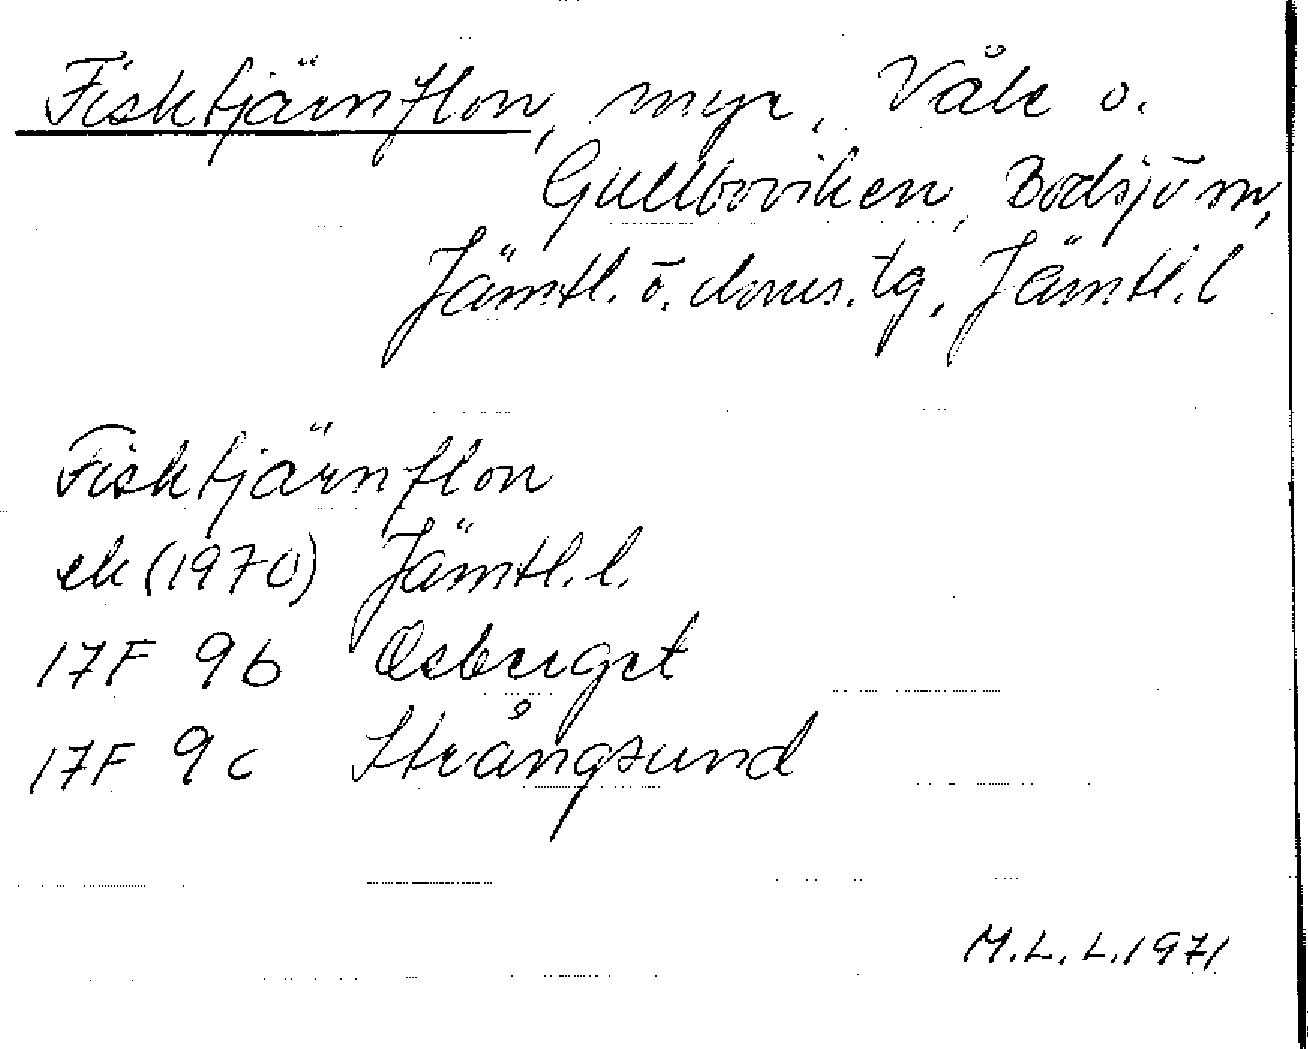 Fisktjärnflon, myr, Våle o.
Gullboviken, Bodsjö sn,
Jämtl. ö. doms. tg, Jämtl. l
Fisktjärnflon
ek (1970) Jämtl. l.
17F 9b Osberget
17F 9c Strångsund
M.L.L. 1971